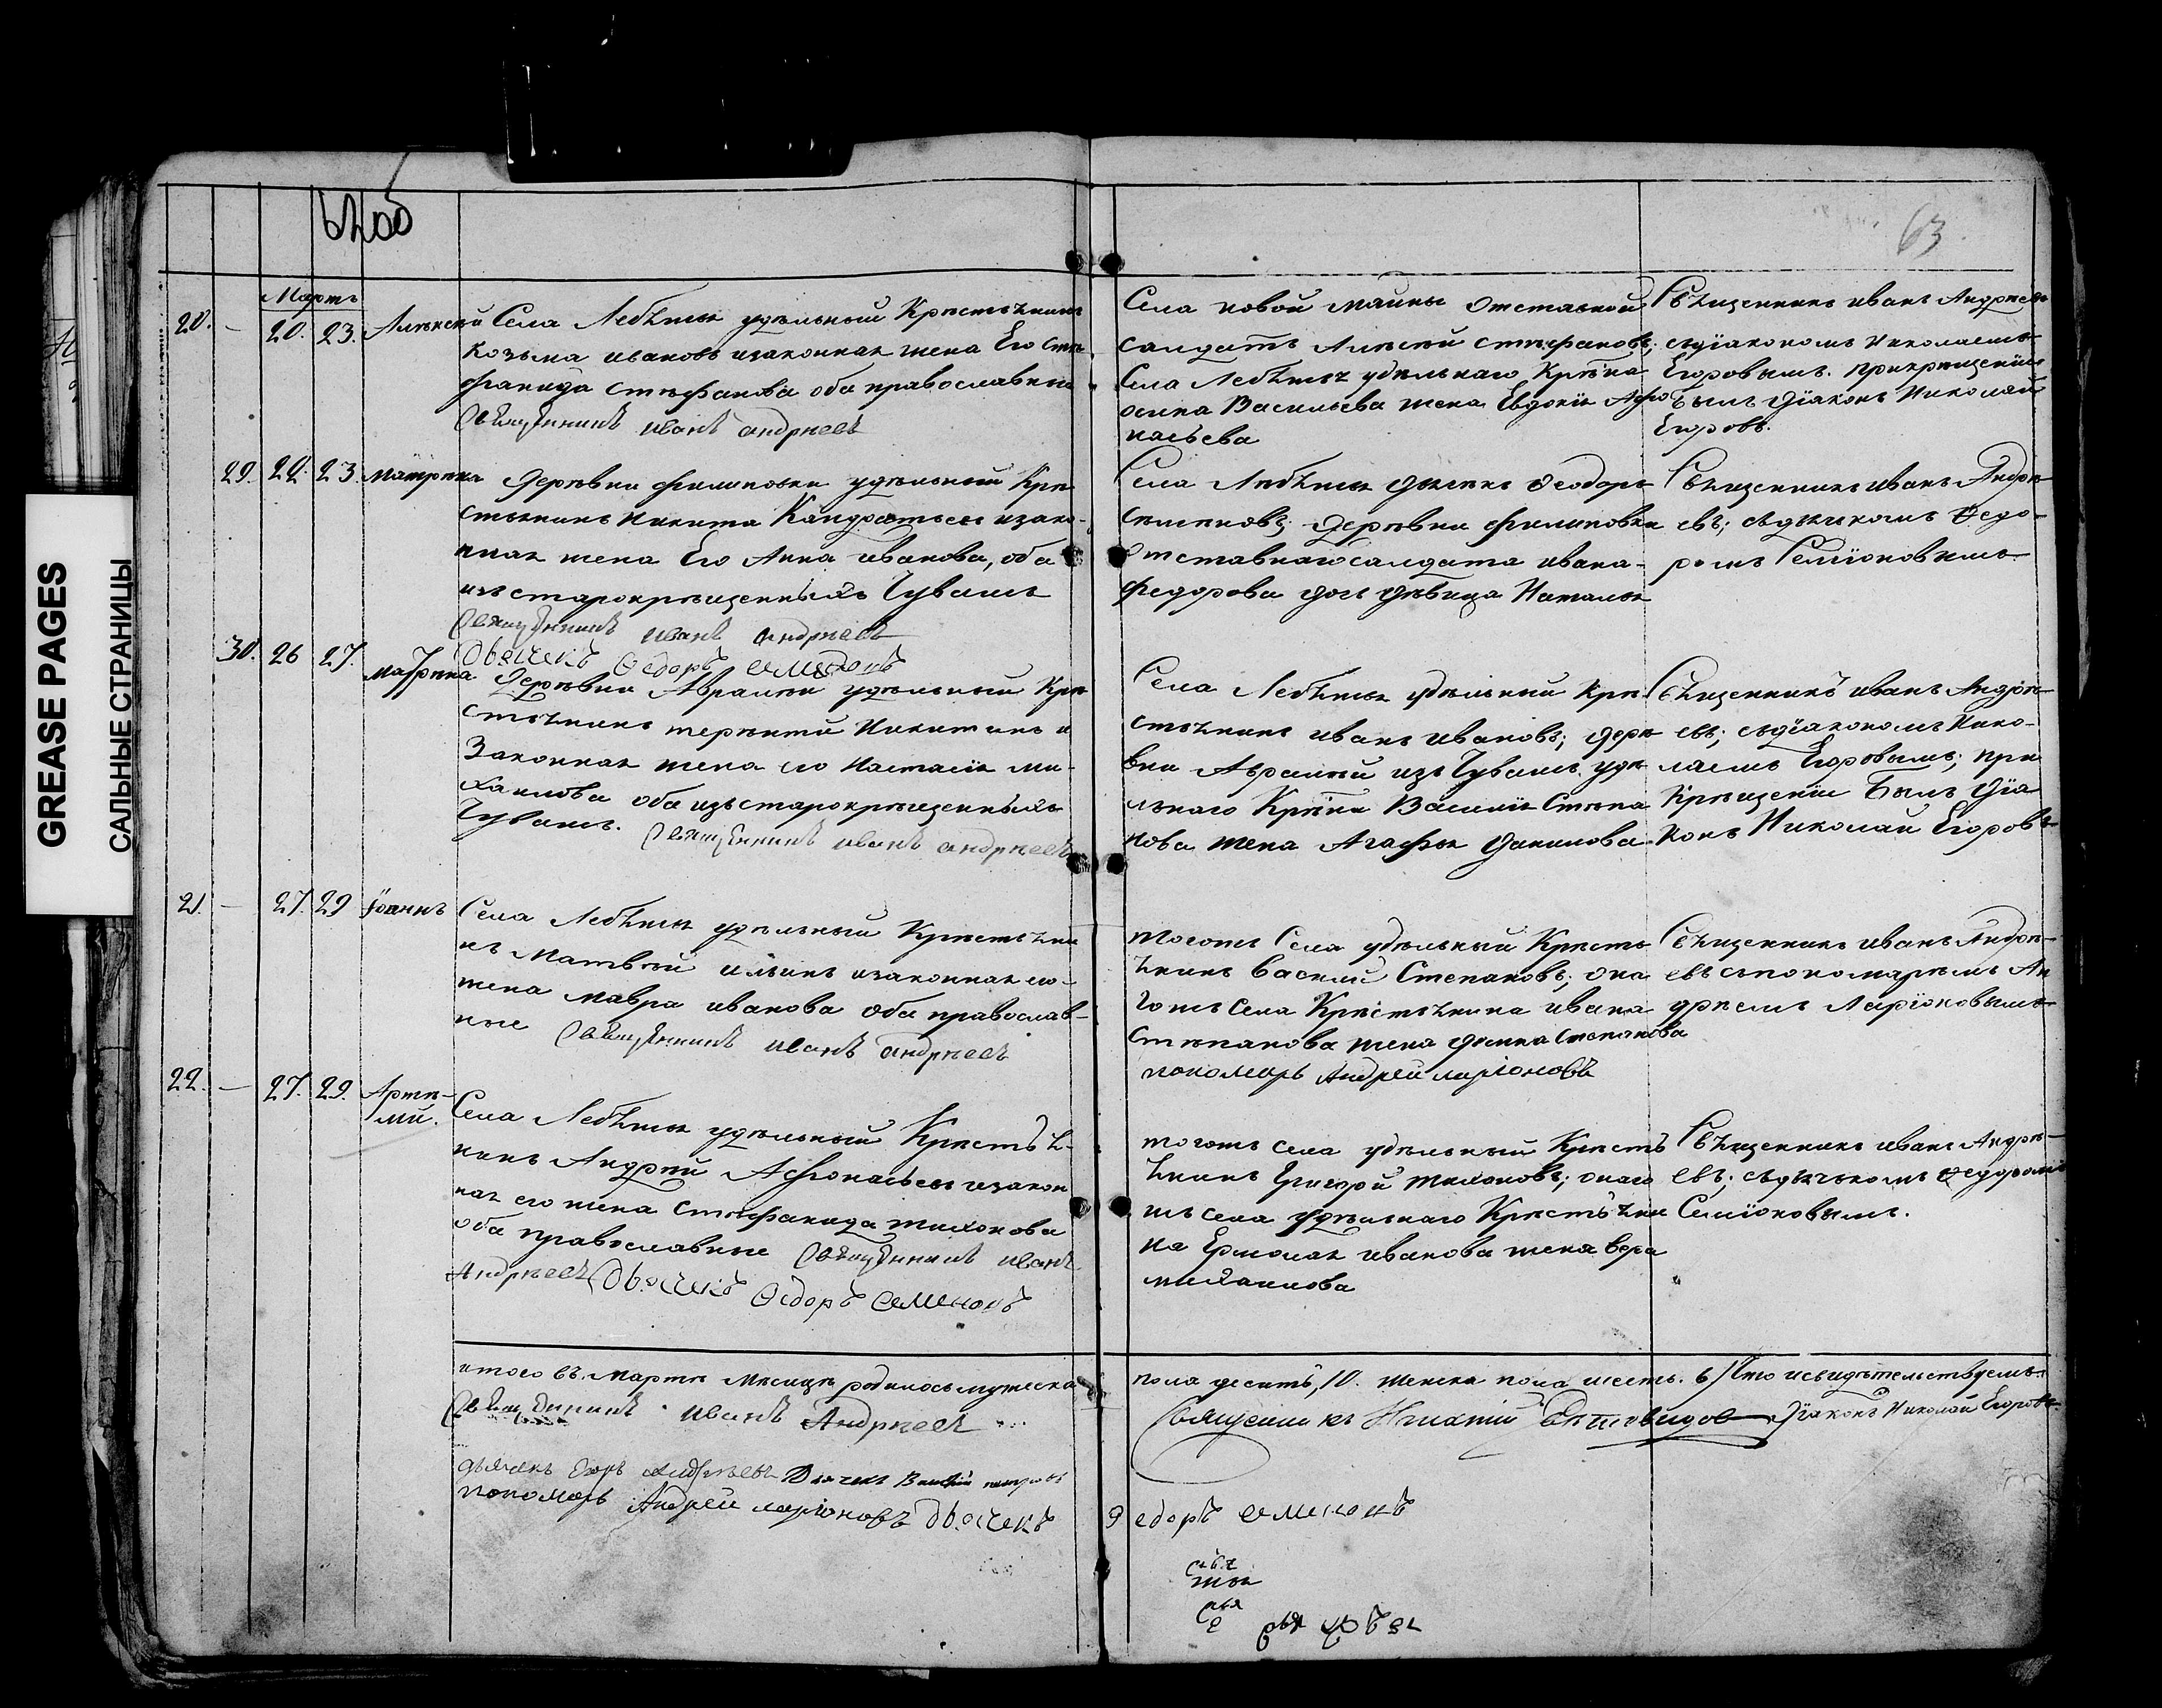 GREASE PAGES
САЛЬНЫЕ СТРАНИЦЫ
62об
63
Мартъ
20. — 20. 23. Алексѣй
Села Лебѣжья удѣльный Крестьянинъ
Козьма ивановъ изаконная жена Его Сте
фанида Стефанова оба православныи
Священникъ иванъ андреевъ
Села новой маины отставной
салдатъ Алексѣй стефановъ;
Села Лебѣжья удѣльнаго Крѣна
осипа Васильева жена Евдокія Афо
насьева
Священникъ иванъ Андреевъ
съдіакономъ Николаемъ
Егоровымъ. прикрещеніи
Былъ діаконъ Николай
Егоровъ.
29. 22. 23 матрена
Деревни филиповки удѣльный Кре
стьянинъ Никита Кандратьевъ изако-
нная жена Его Анна иванова, оба
изъ старокрещенныхъ Чувашъ
Священникъ иванъ андреевъ
Дьячекъ Ѳедоръ семеоновъ
Села Лебѣжья дьячекъ Ѳеодоръ
Семеновъ; деревни филиповки
отставнаго салдата ивана
федорова дочь дѣвица Наталья
Священникъ иванъ Андре
евъ; съдьячкомъ Ѳедо-
ромъ Семіоновымъ
30. 26 27. матрена
Деревни Авралей удѣльный Кре
стьянинъ терентій Никитинъ и
Законная жена его Настасія ми-
хаилова оба изъ старокрещенныхъ
Чувашъ. Священникъ иванъ андреевъ
Села Лебѣжья удѣльный Кре
стьянинъ иванъ ивановъ; дере
вни Авралей изъ Чувашъ удѣ
льнаго Крѣна Василія Степа
нова жена Агафья данилова.
Священникъ иванъ Андре
евъ; съдіакономъ Нико-
лаемъ Егоровымъ; при
Крещеніи Былъ діа
конъ Николай Егоровъ
21. — 27. 29 іоаннъ
Села Лебѣжья удѣльный Крестьяни
нъ Матвѣй ильинъ изаконная его
жена мавра иванова оба православ-
ные Священникъ иванъ андреевъ
тогожъ Села удѣльный Кресть
янинъ Василій Степановъ; она
гожъ села Крестьянина ивана
степанова жена Степанова
пономарь Андрей ларіоновъ
Священникъ иванъ Андре
евъ съпономаремъ Ан
дреемъ Ларіоновымъ
22. — 27. 29. Арте-
мій.
Села Лебѣжья удѣльный Крестья-
нинъ Андрей Афонасьевъ изакон
ная его жена Стефанида тихонова
оба православные Священникъ иванъ
Андреевъ Дьячекъ Ѳедоръ семеновъ
тогожъ села удѣльный Кресть
янинъ Григорій тихоновъ; онаго
жъ села удѣльнаго Крестьяни
на Ермолая иванова жена вера
михаилова
Священникъ иванъ Андре
евъ; съдьячькомъ Ѳедоромъ
Семіоновымъ.
итого въ мартѣ мѣсяцѣ родилось мужеска пола десять, 10. женска пола шесть. 6) Что исвидѣтельствуемъ
Священникъ иванъ Андреевъ Священникъ Діаконъ Николай Егоровъ.
дьячекъ Егоръ Андреевъ Дьячекъ Василій петровъ
пономарь Андрей ларіоновъ Дьячекъ Ѳедоръ семеновъ